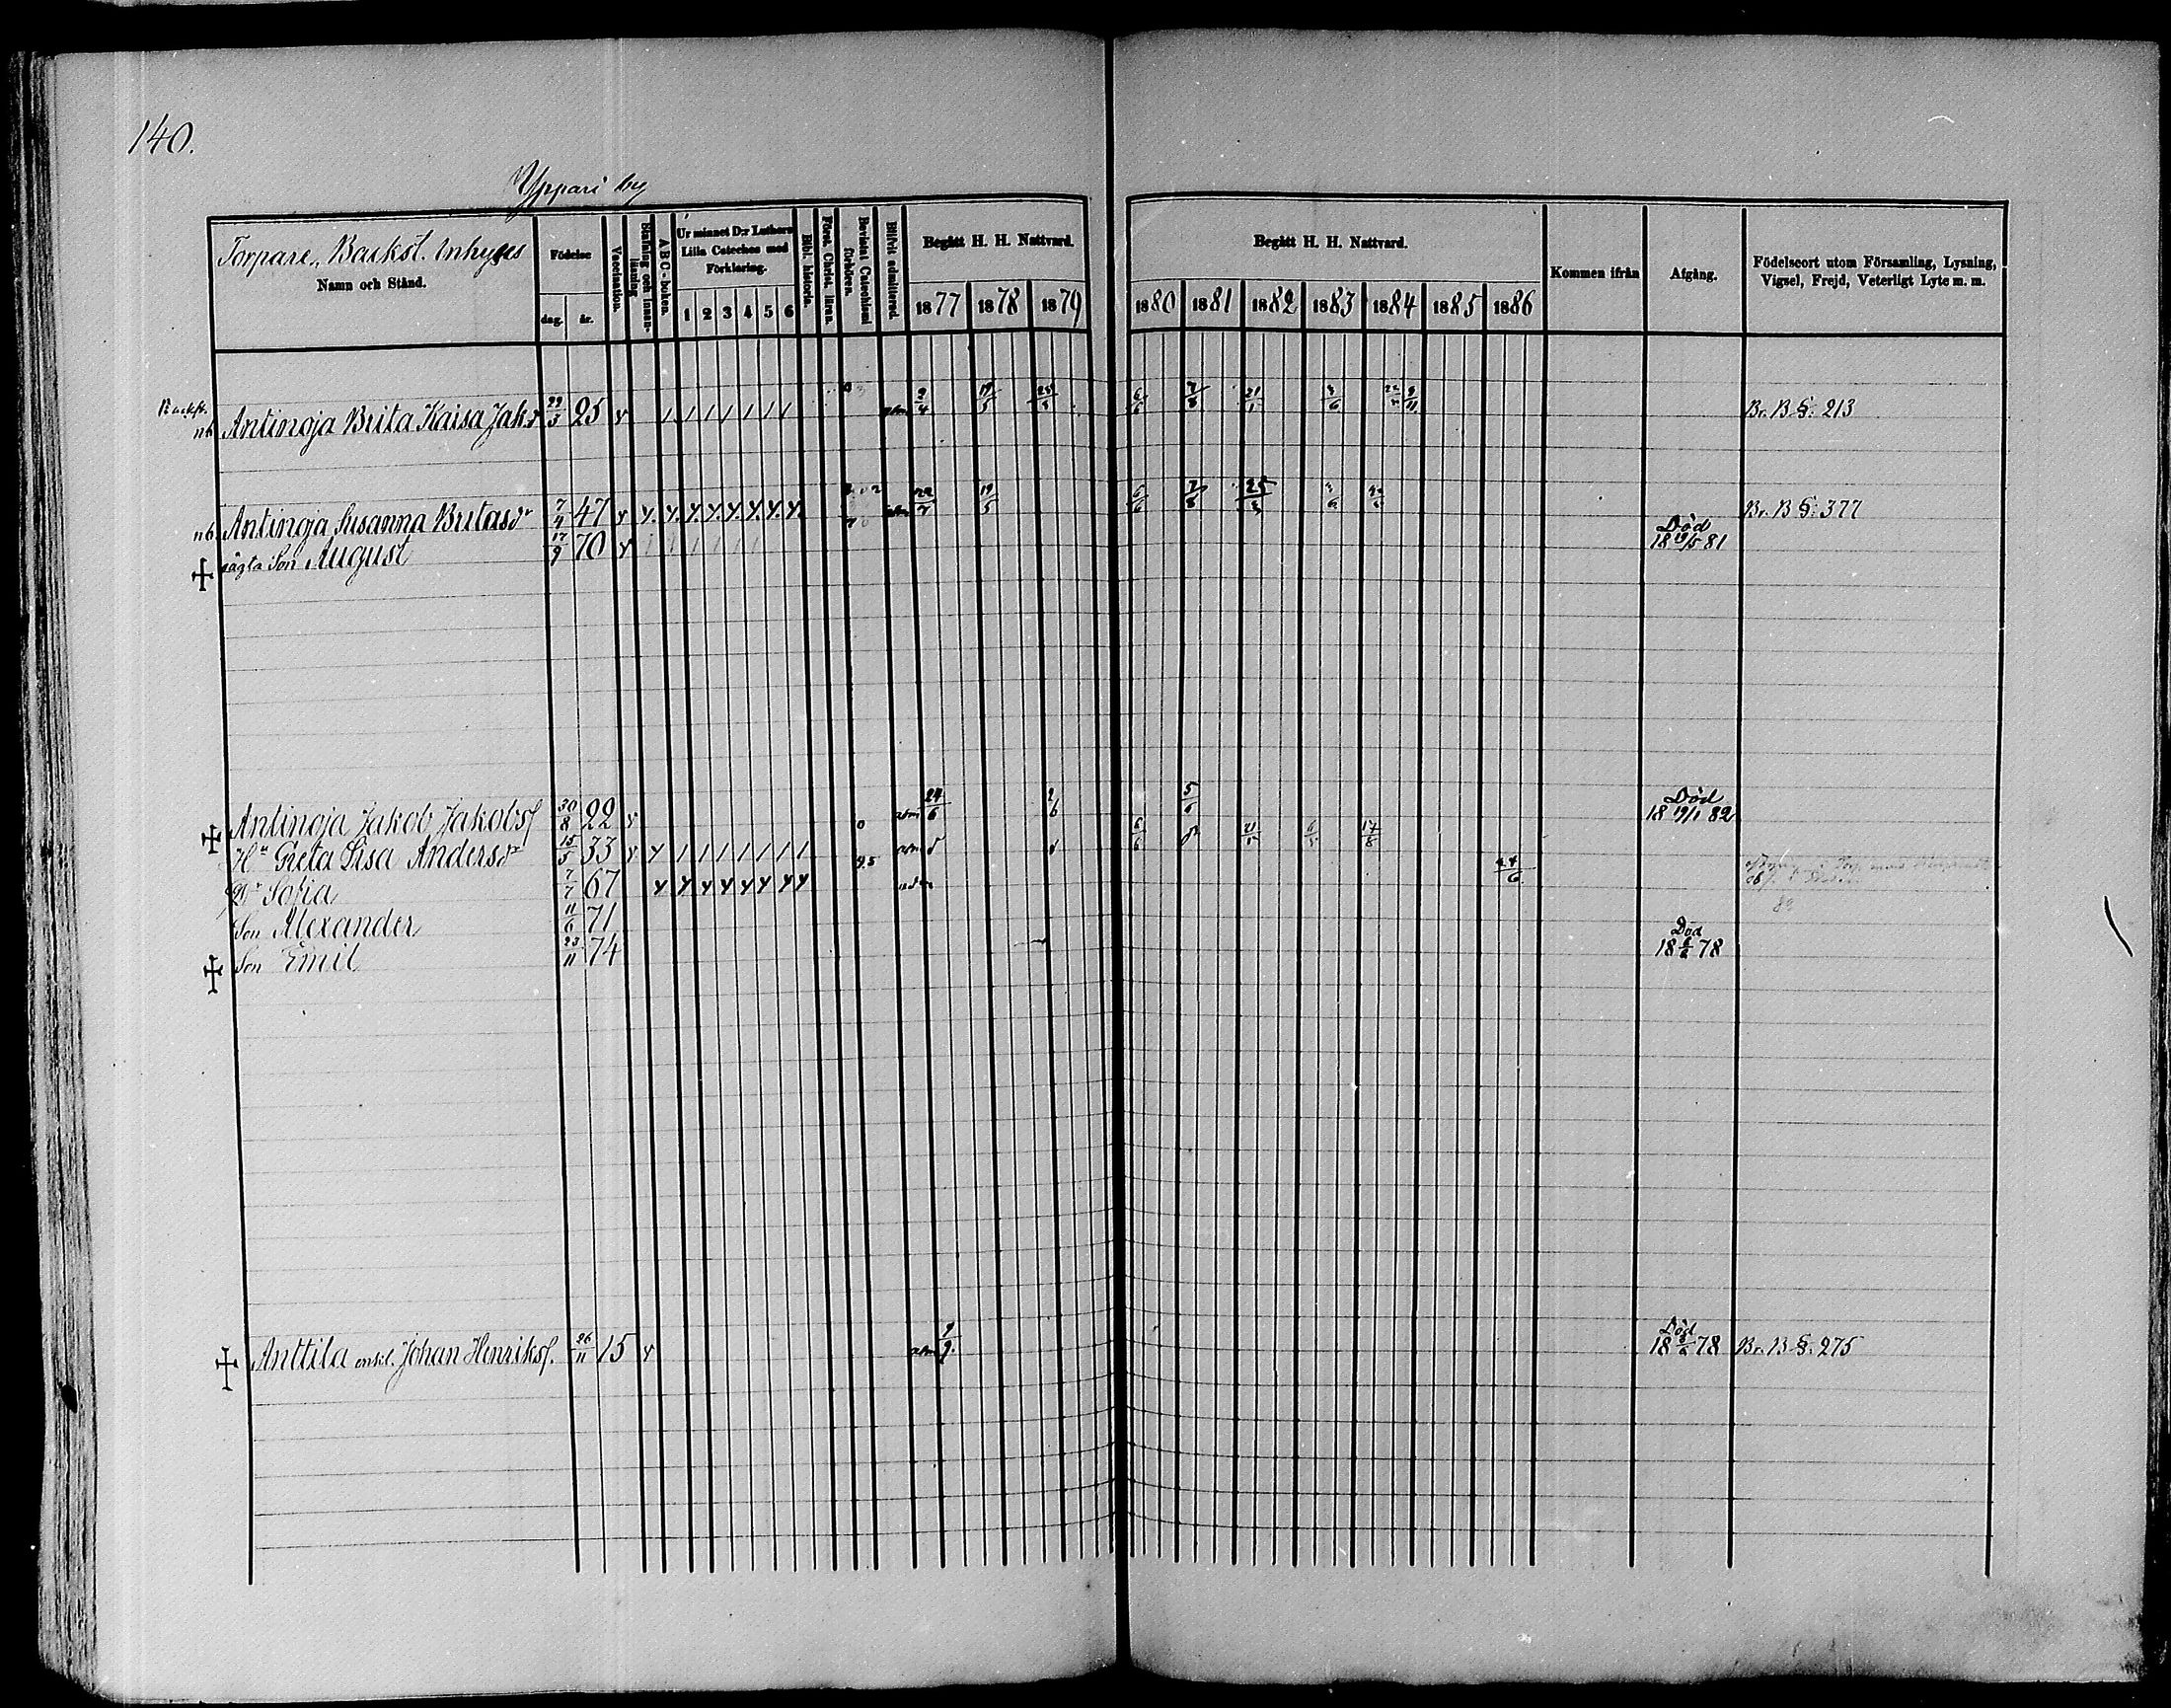 140.
Yppari by
Torpare, Backst. Inhyses
Namn och Stånd.
Födelse
dag.
år.
Vaccination.
A B C-boken.
Ur minnet D:r Luthers
Lilla Cateches med
Förklaring.
1 2 3 4 5 6
Bibl. historia.
Först. Christ. läran.
Bevistat Catechismi
förhören.
Blifvit admitterad.
Begått H. H. Nattvard.
1877 1878 1879
Begått H. H. Nattvard.
1880 1881 1882 1883 1884 1885 1886
Kommen ifrån
Afgång.
Födelseort utom Församling, Lysning,
Vigsel, Frejd, Veterligt Lyte m. m.
Backst.
nb Antinoja Brita Kaisa Jak.dr 29/3 25 v 2/4 19/5 6/6 7/8 21/1 9/11 Br. B. §. 213
nb. Antinoja Susanna Britasdr 7/4 47 v 19/5 6/6 7/8 Br. B. §: 377
oägta Son August 17/9 70 v Död 18 19/5 81
Antinoja Jakob Jakobsf 30/8 22 v adm 24/6 2/6 5/6 Död 18 19/1 82
Hu Greta Lisa Andersdr 15/5 33 v adm 6/6 21/5 17/8
Dr Sofia 7/7 67
Son Alexander 11/6 71
Son Emil 23/11 74 Död 18 78
Anttila enkl. Johan Henriksf. 26/11 15 v adm 9/9. Död 18 78 Br. B. §. 275